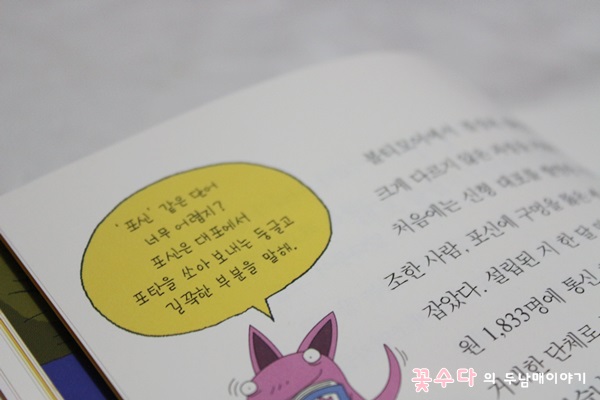 '포신' 같은 단어
너무 어렵지?
포신은 대포에서
포탄을 쏘아 보내는 둥글고
길쭉한 부분을 말해.
볼티모어에서
크게 다르기 않은
처음에는 신형 대포를
조한 사람, 포신에 구멍을 뚫은
잡았다. 설립된 지 한 달
원 1,833명에 통신
거대한 단체로
꽃수다의 두남매이야기